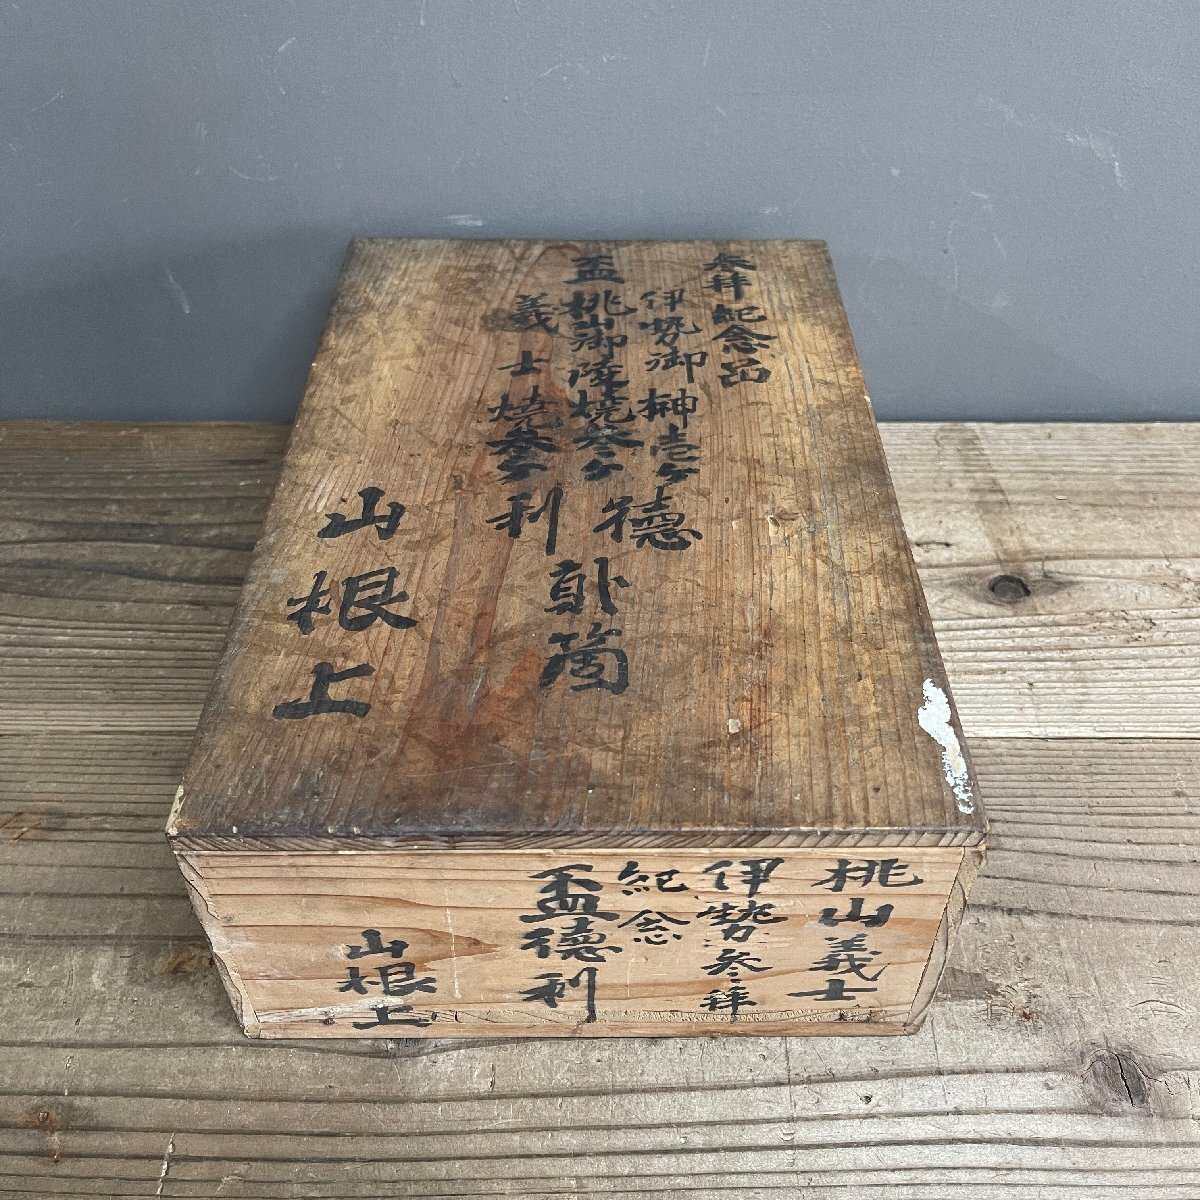 参拝紀念品
伊勢御榊壱ヶ
盃桃山御陵焼参ヶ
義士焼参ヶ
徳
利
箇
山根上
桃山義士
伊勢参拝
紀念
盃徳利
山根上